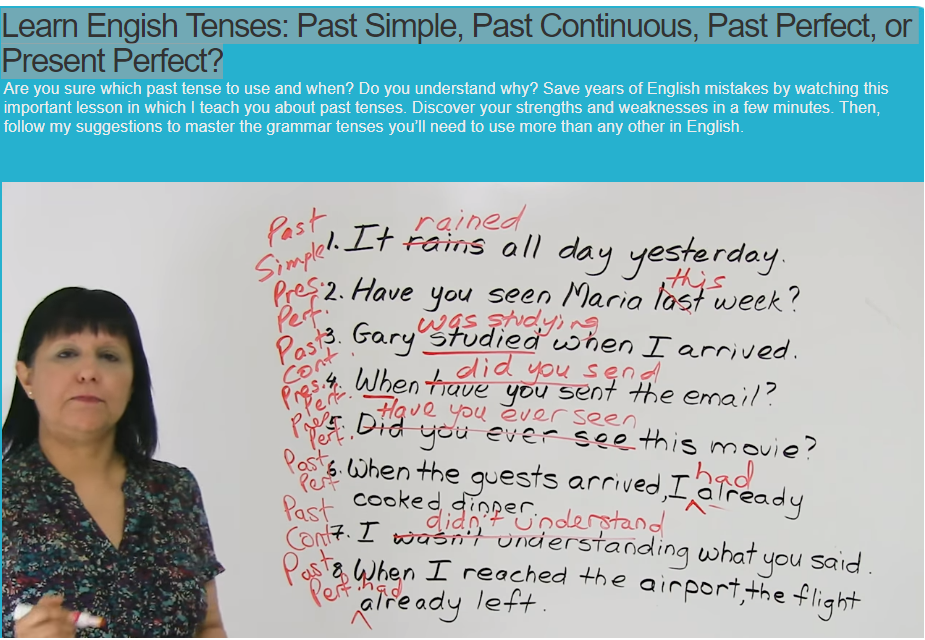 Learn Engish Tenses: Past Simple, Past Continuous, Past Perfect, or
Present Perfect?
Are you sure which past tense to use and when? Do you understand why? Save years of English mistakes by watching this
important lesson in which I teach you about past tenses. Discover your strengths and weaknesses in a few minutes. Then,
follow my suggestions to master the grammar tenses you'll need to use more than any other in English.
Past Simple
rained
1. It rains all day yesterday.
Pres. Perf.
this
2. Have you seen Maria last week?
Past Cont.
was studying
3. Gary studied when I arrived.
Pres. Perf.
did you send
4. When have you sent the email?
Pres. Perf.
Have you ever seen
5. Did you ever see this movie?
Past Perf
had
6. When the guests arrived, I already
cooked dinner.
Past Cont
didn't understand
7. I wasn't understanding what you said.
Past Perf.
8. When I reached the airport, the flight
had
already left.